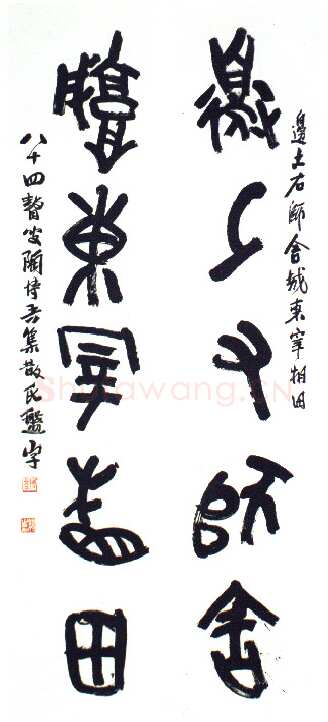 邊土右師舍東宰相田
邊土右師舍
東宰相田
八十四瞽叟陶博吾集散氏盤字
Shufawang.CN